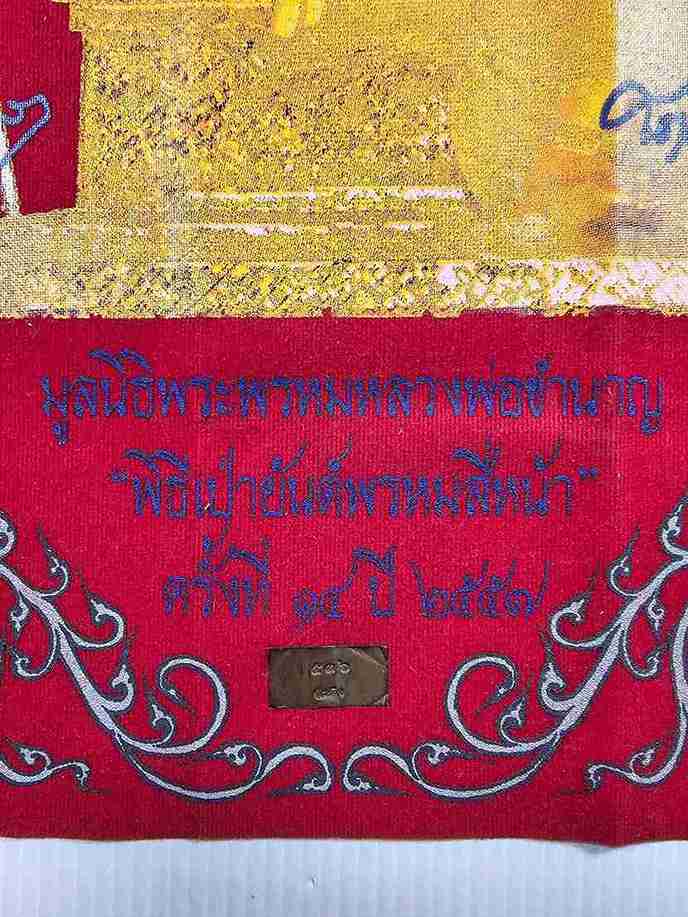 มูลนิธิพระพรหมหลวงพ่อชำนาญ
"พิธีเป่ายันต์พรหมสี่หน้า"
ครั้งที่ ๑๔ ปี ๒๕๕๗